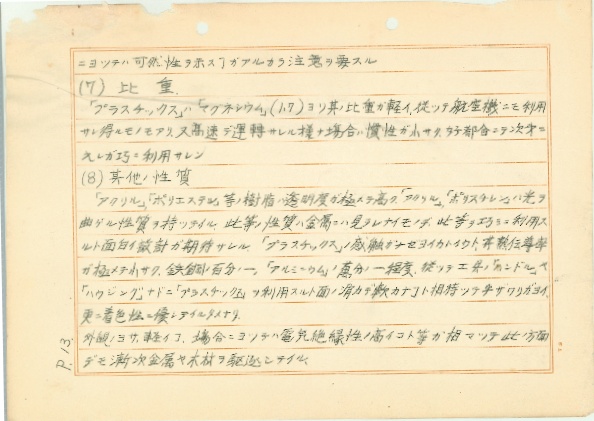 ニヨツテハ可然性ヲ示ス丁ガアルカラ注意ヲ要スル
(7) 比重
「プラスチックス」ハ「マグネシウム」(1.7)ヨリ其ノ比重ガ軽イ、従ツテ航空機ニモ利用
サレ得ルモノモアリ、又高速デ運轉サレル様ナ場合ハ慣性ガ小サク、好都合ニテ次第ニ
之レガ巧ニ利用サレン
(8) 其他ノ性質
「アクリル」、「ポリエステル」等ノ樹脂ハ透明度ガ極メテ高ク、「アクリル」、「ポリスチレン」ハ光ヲ
曲ゲル性質ヲ持ツテイル、此等ノ性質ハ金属ニハ見ラレナイモノデ、此等ヲ巧ミニ利用ス
ルト面白イ設計ガ期待サレル、「プラスチックス」ノ感触ガナセヨイカトイウト、其熱伝導率
ガ極メテ小サク、鉄鋼ノ百分ノ一、「アルミニウム」ノ萬分ノ一程度、従ツテ工具ノ「ハンドル」ヤ
「ハウジング」ナドニ「プラスチックス」ヲ利用スルト面ノ滑カデ軟カナコト相待ツテ手ザワリガヨイ、
更ニ着色性ニ優レテイルタメナリ、
外観ノヨサ、軽イコト、場合ニヨツテハ電気絶縁性ノ高イコト等ガ相マツテ此ノ方面
デモ漸次金属ヤ木材ヲ駆逐シテイル、
P.13.